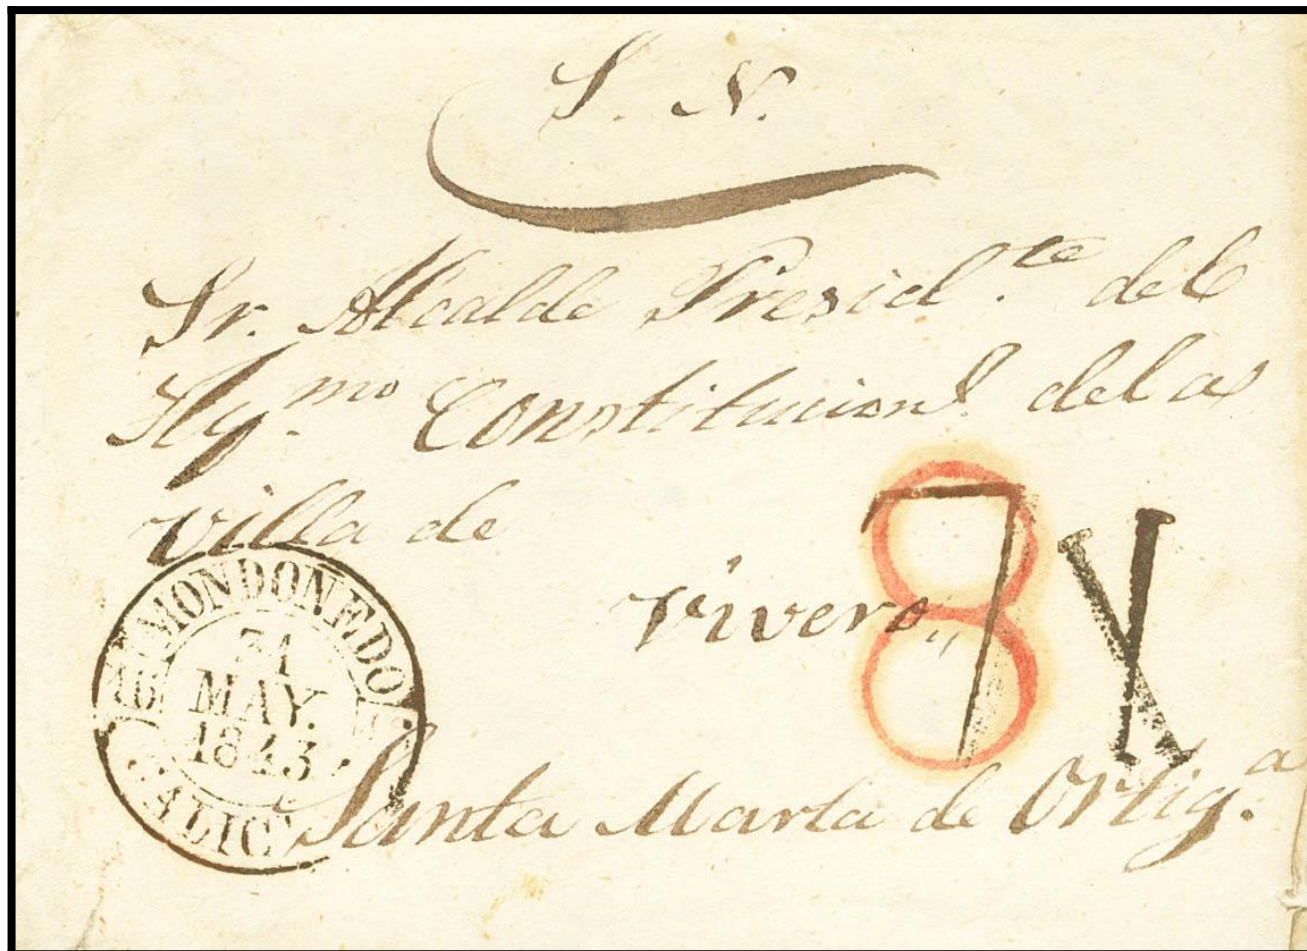 S. N.
Sr. Alcalde Presid.te del
Ay.mo Constitucion.l de la
villa de
vivero,,
8 7 X
MONDOÑEDO
16
31
MAY.
1843
GALICIA
Santa Marta de Ortig.a